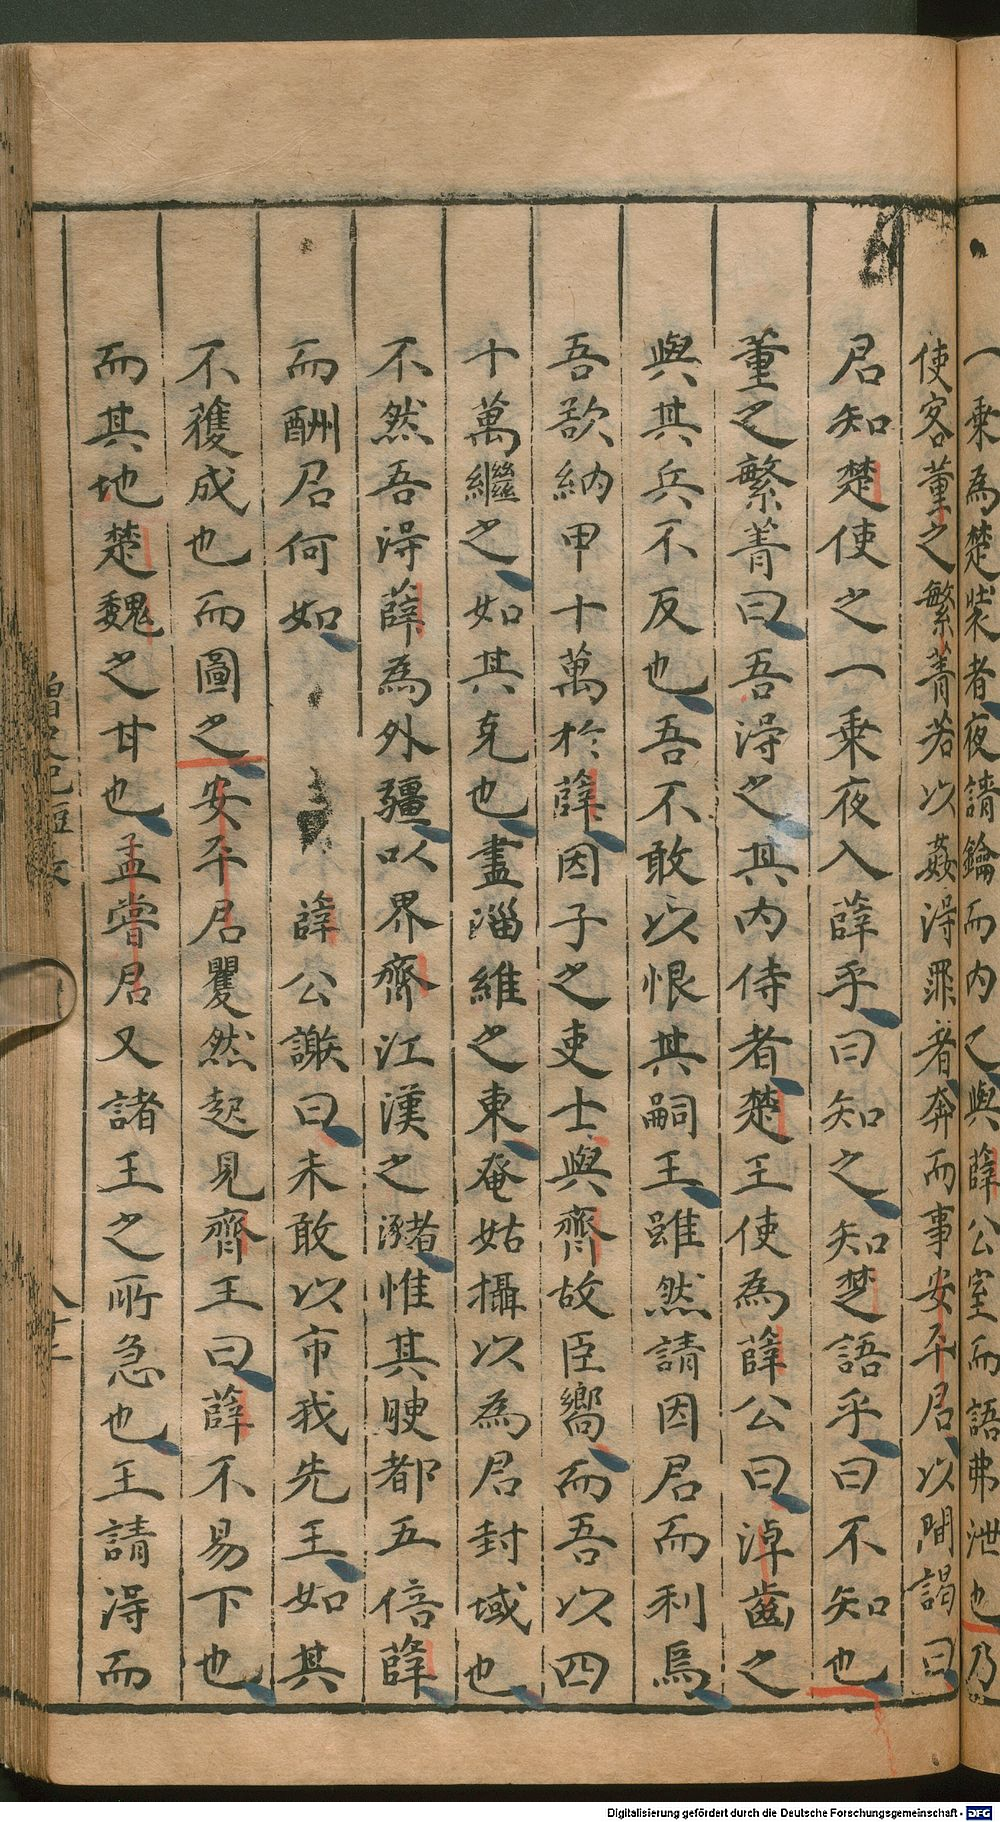 一乘為楚裝者夜請鑰而內之與薛公室而語弗泄也乃
使客董之繁菁若以姦淂罪者奔而事安平君以間謁曰
君知楚使之一乘夜入薛乎曰知之知楚語乎曰不知也
董之繁菁曰吾淂之其內侍者楚王使為薛公曰淖齒之
與其兵不反也吾不敢以恨其嗣王雖然請因君而利焉
吾欲納甲十萬於薛因子之吏士與齊故臣嚮而吾以四
十萬繼之如其克也盡淄維之東奄姑攝以為君封域也
不然吾淂薛為外疆以界齊江漢之瀦惟其腴都五倍薛
而酬君何如　薛公謝曰未敢以市我先王如其
不獲成也而圖之安平君矍然起見齊王曰薛不易下也
而其地楚魏之甘也孟嘗君又諸王之所急也王請淂而
Digitalisierung gefördert durch die Deutsche Forschungsgemeinschaft - DFG